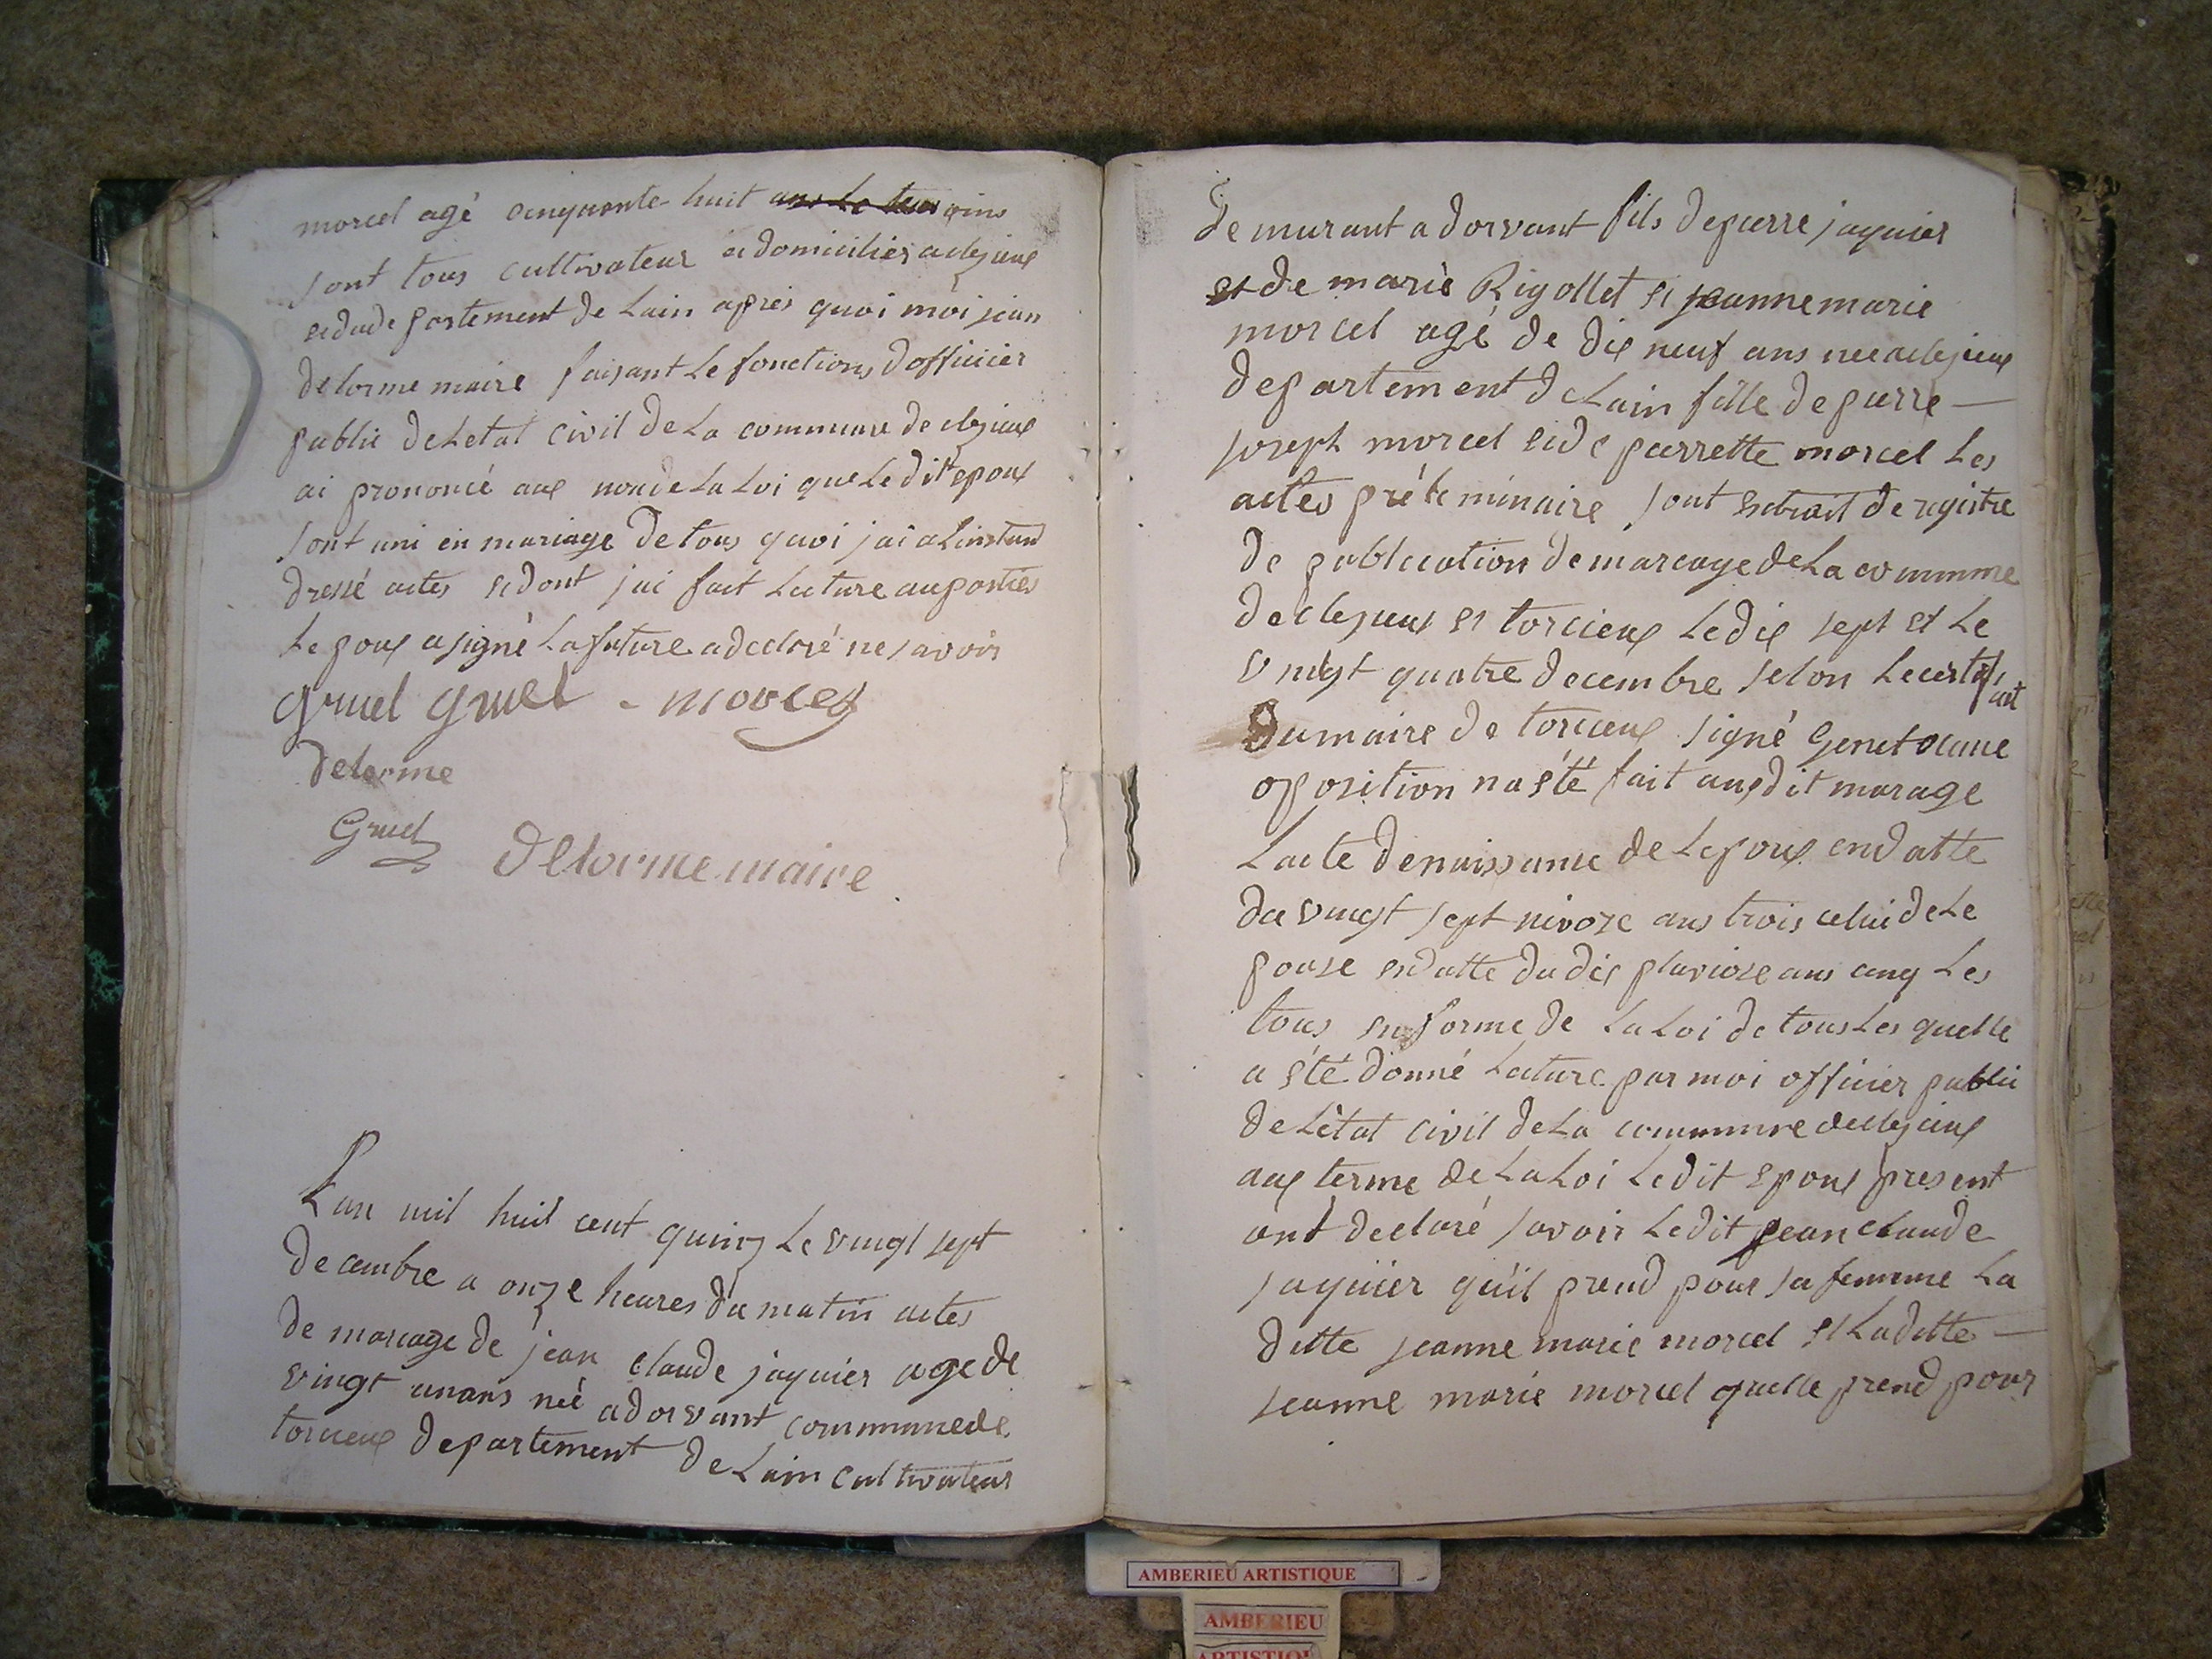 morcel agé cinquante huit ans Le temoins
sont tous cultivateur et domicilies a clezieux
et du departement de Lain aprés quoi moi jean
delorme maire faisant Le fonctions dofficier
public de Letat civil de La commune de clezieux
ai prononcé aux nom de La Loi que Le dit epoux
sont uni en mariage de tous quoi jai a Linstand
dressé actes et dont jai fait Lecture au parties
Le poux a signé La future a declaré ne savoir
gruel gruel - morcel
delorme
Gruel
delorme maire
Lan mil huit cent quinz Le vingt sept
decembre a onze heures du matin actes
de mareage de jean claude jaquier age de
vingt un ans neé a dorvant commune de
torcieux departement de Lain cultivateur
demurant a dorvant fils de pierre jaquier
et de marie Rigollet et jeanne marie
morcel agé de dix neuf ans nee a clezieux
departement de Lain fille de pierre —
joseph morcel et de pierrette morcel Les
actes préleminaire sont extrait de registre
de publication de mareage de La commune
de clezieux et torcieux Le dix sept et Le
vingt quatre decembre selon Le certificat
du maire de torcieux signé Genet ocune
oposition na été fait aux dit marage
Lacte de naissance de Lepoux en datte
du vingt sept nivoze ans trois celui de Le
pouse en datte du dix pluvioze ans cinq Les
tous en forme de La Loi de tous Les quelle
a été donné Lecture par moi officier public
de Létat civil de La commune de clezieux
aux terme de La Loi Le dit epoux present
ont declaré savoir Le dit jean claude
jaquier quil prend pour sa femme La
ditte jeanne marie morcel et La ditte —
jeanne marie morcel quelle prend pour
AMBERIEU ARTISTIQUE
AMBERIEU
ARTISTIQUE